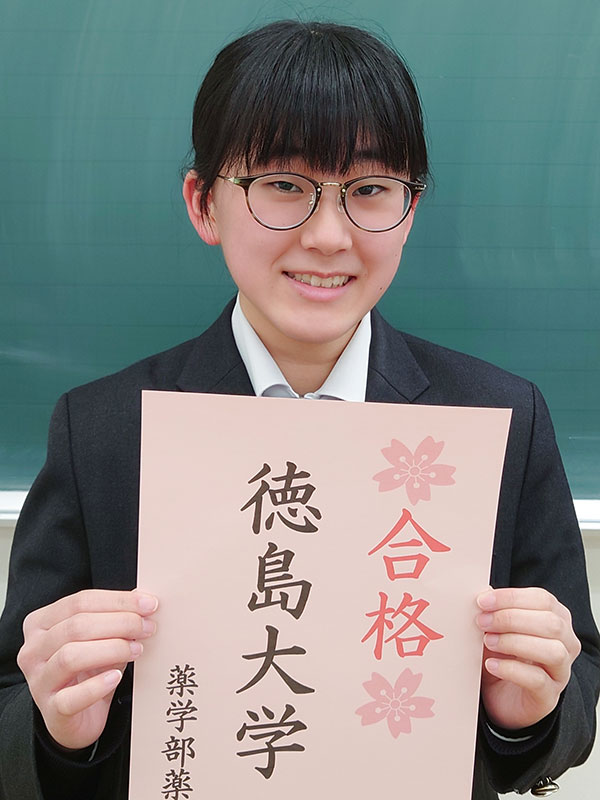 合格
徳島大学
薬学部薬